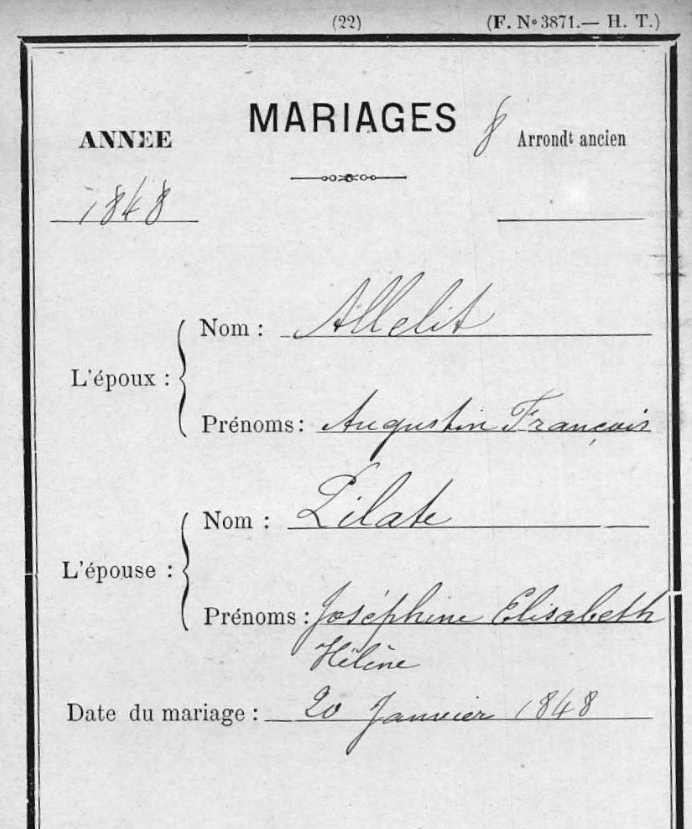 (22) (F. Nº 3871.— H. T.)
MARIAGES
ANNEE 8 Arrondt ancien
1848
Nom : Allelit
L'époux :
Prénoms : Augustin François
Nom : Pilate
L'épouse :
Prénoms : Joséphine Elisabeth
Hélène
Date du mariage : 20 Janvier 1848